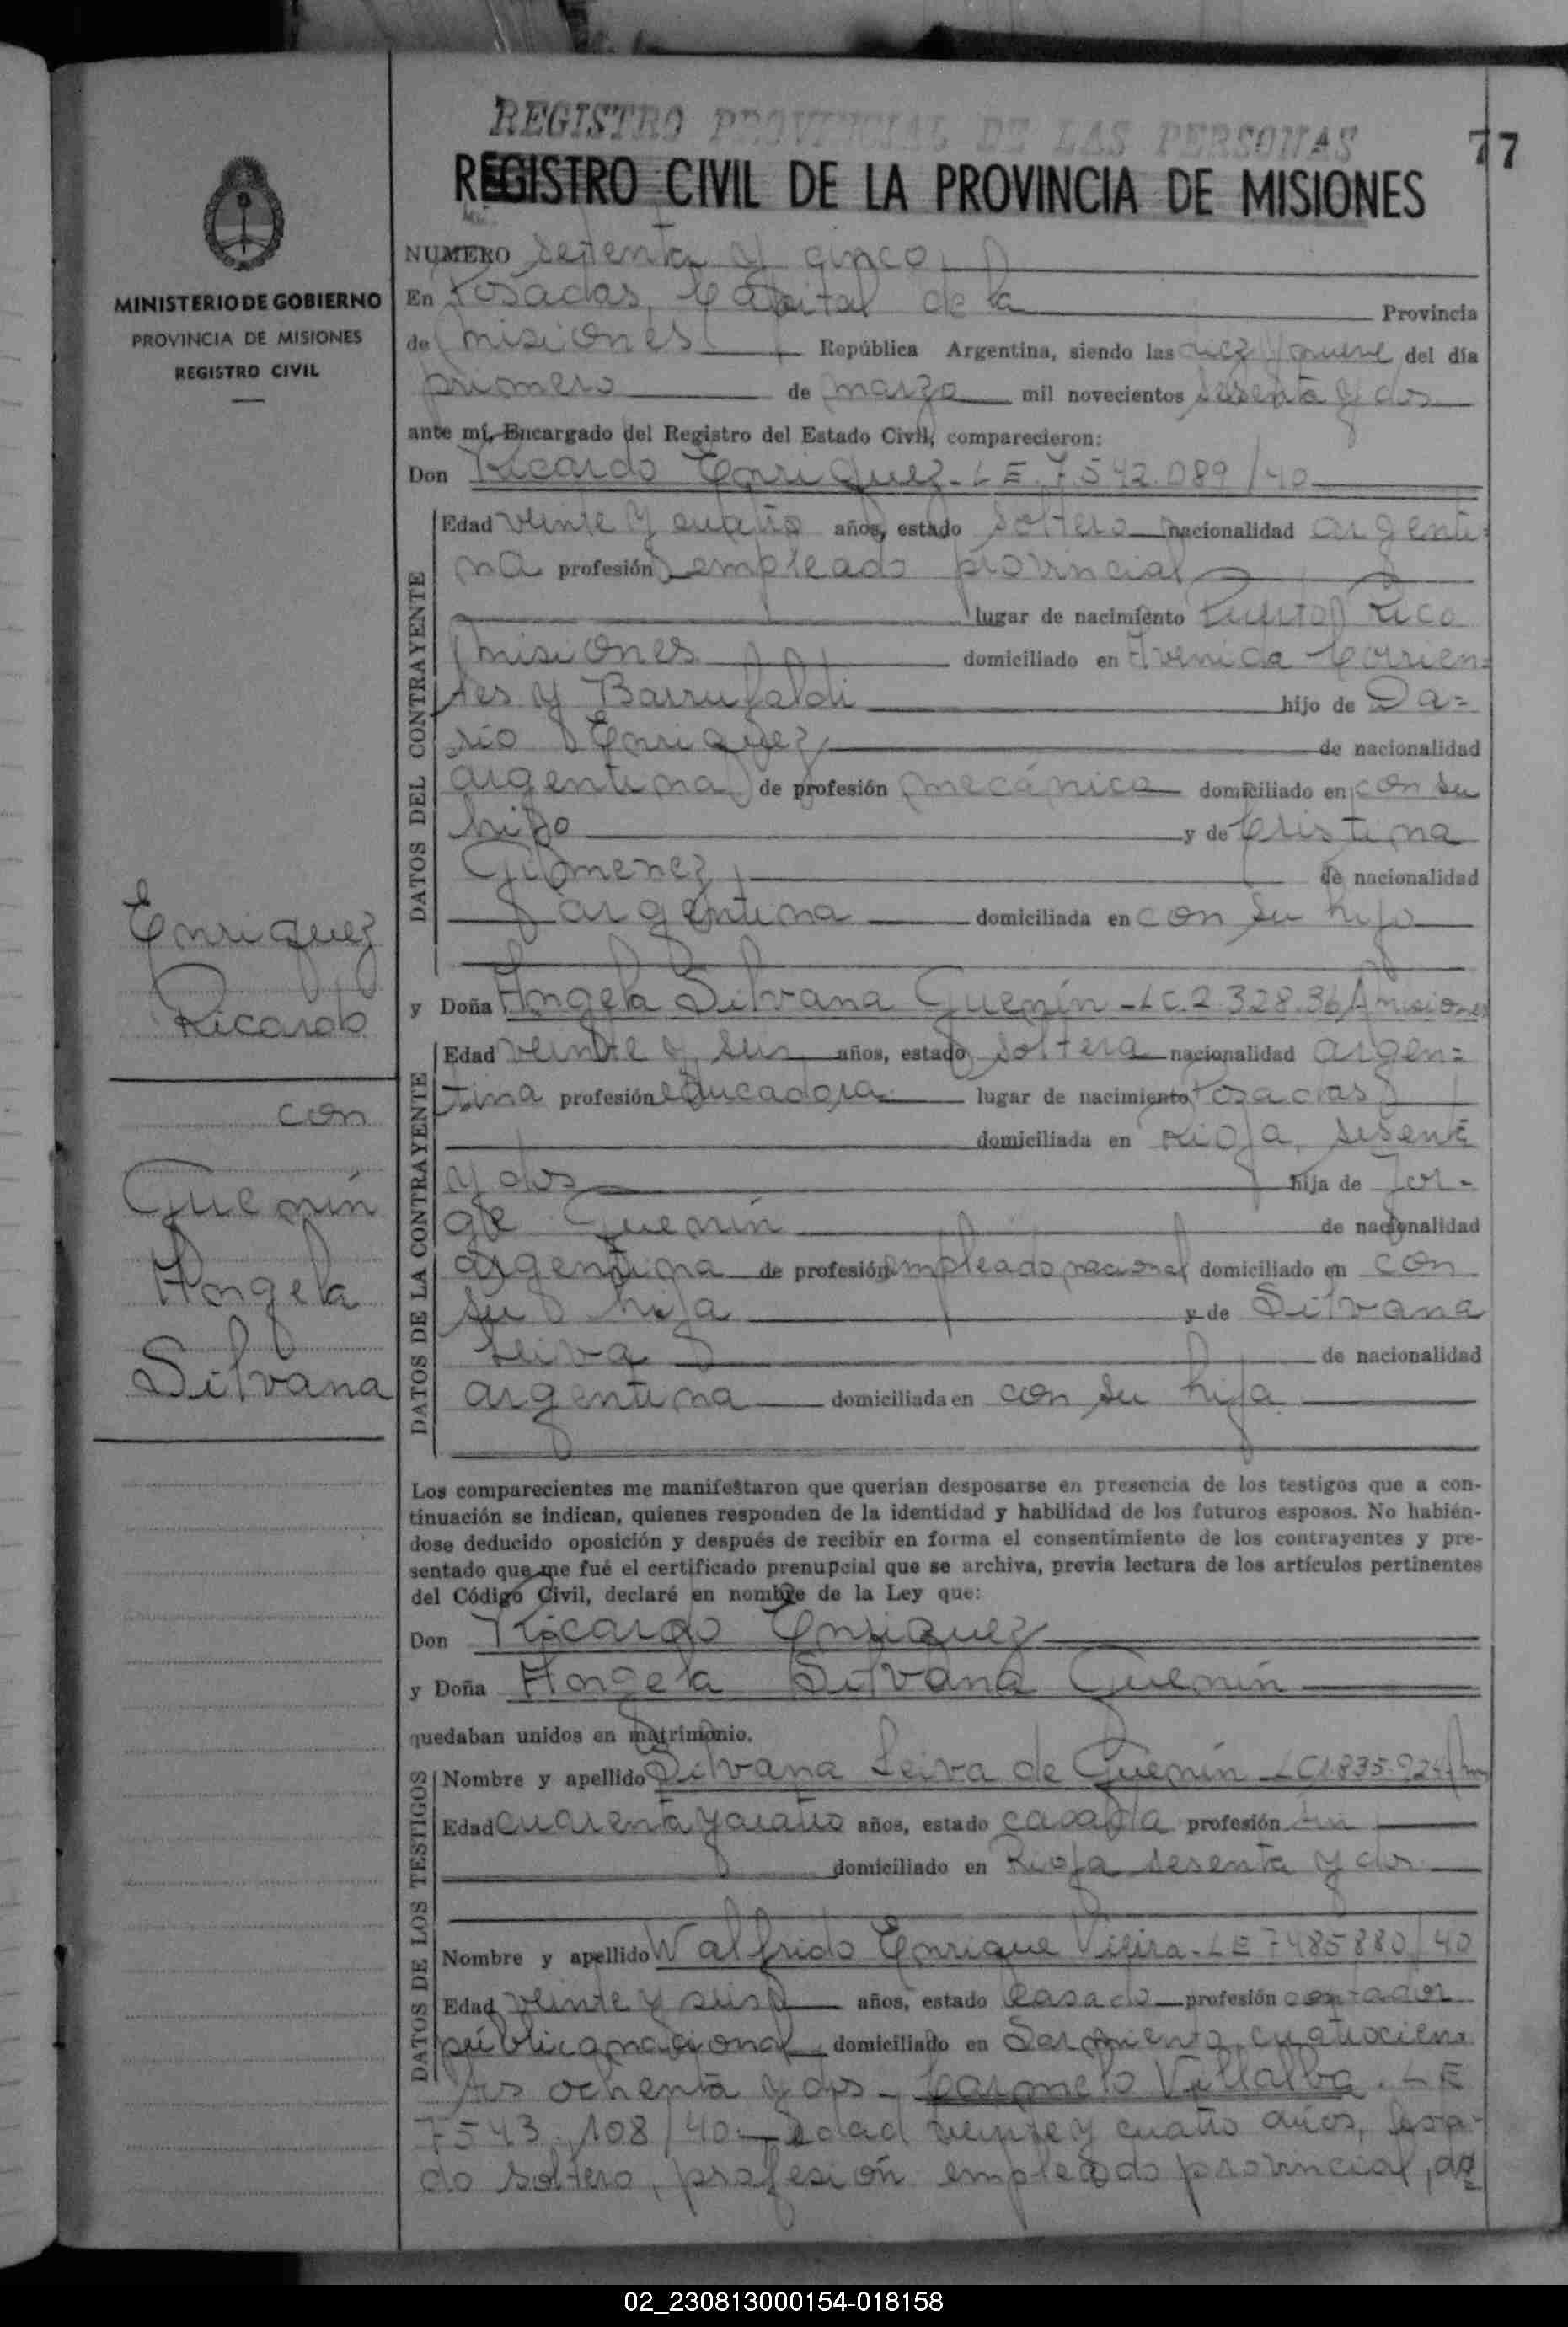 REGISTRO PROVINCIAL DE LAS PERSONAS
77
REGISTRO CIVIL DE LA PROVINCIA DE MISIONES
MINISTERIO DE GOBIERNO
PROVINCIA DE MISIONES
REGISTRO CIVIL
Enriquez
Ricardo
con
Guenín
Angela
Silvana
NUMERO setenta y cinco
En Posadas, Capital de la Provincia
de misiones República Argentina, siendo las diez y nueve del día
primero de marzo mil novecientos sesenta y dos
ante mí, Encargado del Registro del Estado Civil, comparecieron:
Don Ricardo Enriquez - LE. 7.542.089/40
DATOS DEL CONTRAYENTE
Edad veinte y cuatro años, estado soltero nacionalidad argenti=
na profesión empleado provincial
lugar de nacimiento Puerto Rico
misiones domiciliado en Avenida Corrien=
tes y Barrufaldi hijo de Da=
rio Enriquez de nacionalidad
argentina de profesión mecánico domiciliado en con su
hijo y de Cristina
Gimenez de nacionalidad
argentina domiciliada en con su hijo
y Doña Angela Silvana Guenín - LC. 2.328.36 misiones
DATOS DE LA CONTRAYENTE
Edad veinte y seis años, estado soltera nacionalidad argen=
tina profesión educadora lugar de nacimiento Posadas
domiciliada en Rioja, sesenta
y dos hija de Jor-
ge Guenín de nacionalidad
argentina de profesión empleado nacional domiciliado en con
su hija y de Silvana
Leiva de nacionalidad
argentina domiciliada en con su hija
Los comparecientes me manifestaron que querían desposarse en presencia de los testigos que a con-
tinuación se indican, quienes responden de la identidad y habilidad de los futuros esposos. No habién-
dose deducido oposición y después de recibir en forma el consentimiento de los contrayentes y pre-
sentado que me fué el certificado prenupcial que se archiva, previa lectura de los artículos pertinentes
del Código Civil, declaré en nombre de la Ley que:
Don Ricardo Enriquez
y Doña Angela Silvana Guenín
quedaban unidos en matrimonio.
DATOS DE LOS TESTIGOS
Nombre y apellido Silvana Leiva de Guenín - LC 1.835.924
Edad cuarenta y cuatro años, estado casada profesión sin
domiciliado en Rioja sesenta y dos
Nombre y apellido Walfrido Enrique Vieira - LE 7485880/40
Edad veinte y seis años, estado Casado profesión contador
público nacional domiciliado en Sarmiento, cuatrocien=
tos ochenta y dos - Carmelo Villalba. LE
7543.108/40 - Edad veinte y cuatro años, esta-
do soltero, profesión empleado provincial, do=
02_230813000154-018158